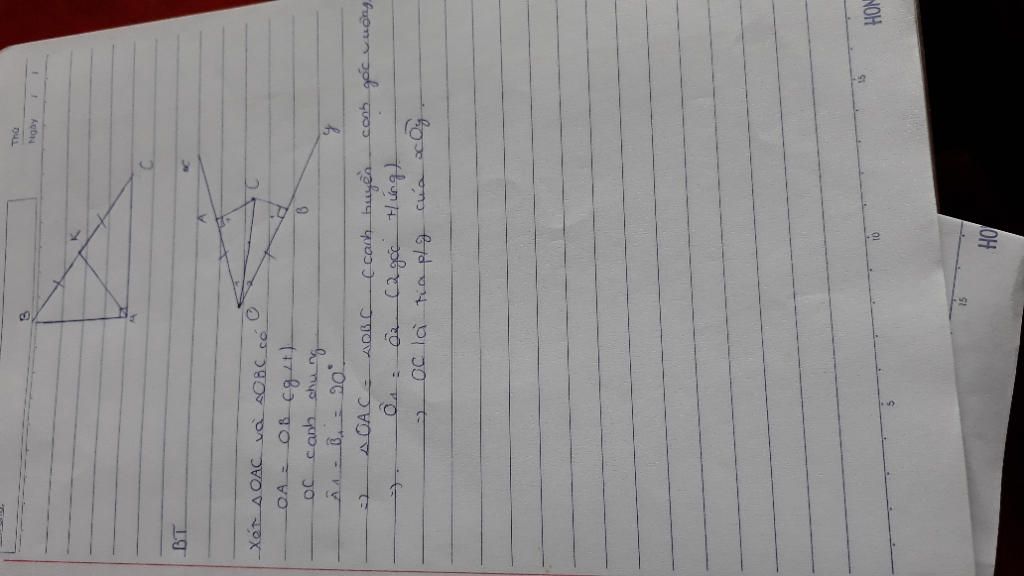 Thứ
Ngày / /
B
K
C
A
BT
x
A
C
O
B
y
Xét △OAC và △OBC có
OA = OB (g/t)
OC cạnh chung
Â1 = B̂1 = 90°
=> △OAC = △OBC (cạnh huyền cạnh góc vuông)
=> Ô1 = Ô2 (2 góc t/ứng)
=> OC là tia p/g của xÔy.
5
10
15
HON
15
HO